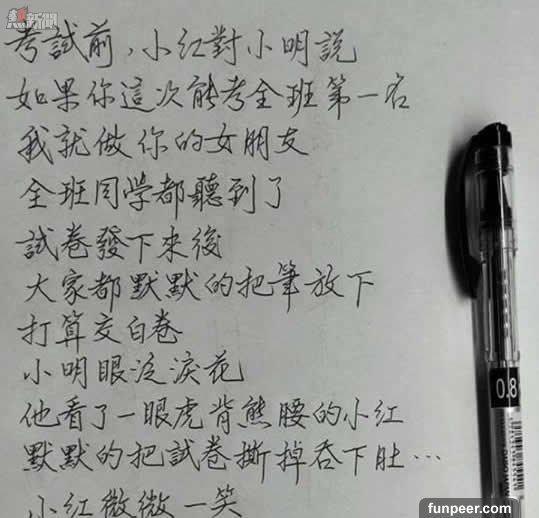 新聞
考試前，小红對小明説
如果你這次能考全班第一名
我就做你的女朋友
全班同学都聽到了
試卷發下來後
大家都默默的把筆放下
打算交白卷
小明眼泛淚花
他看了一眼虎背熊腰的小红
默默的把試卷撕掉吞下肚…
小红微微一笑
0.8
funpeer.com